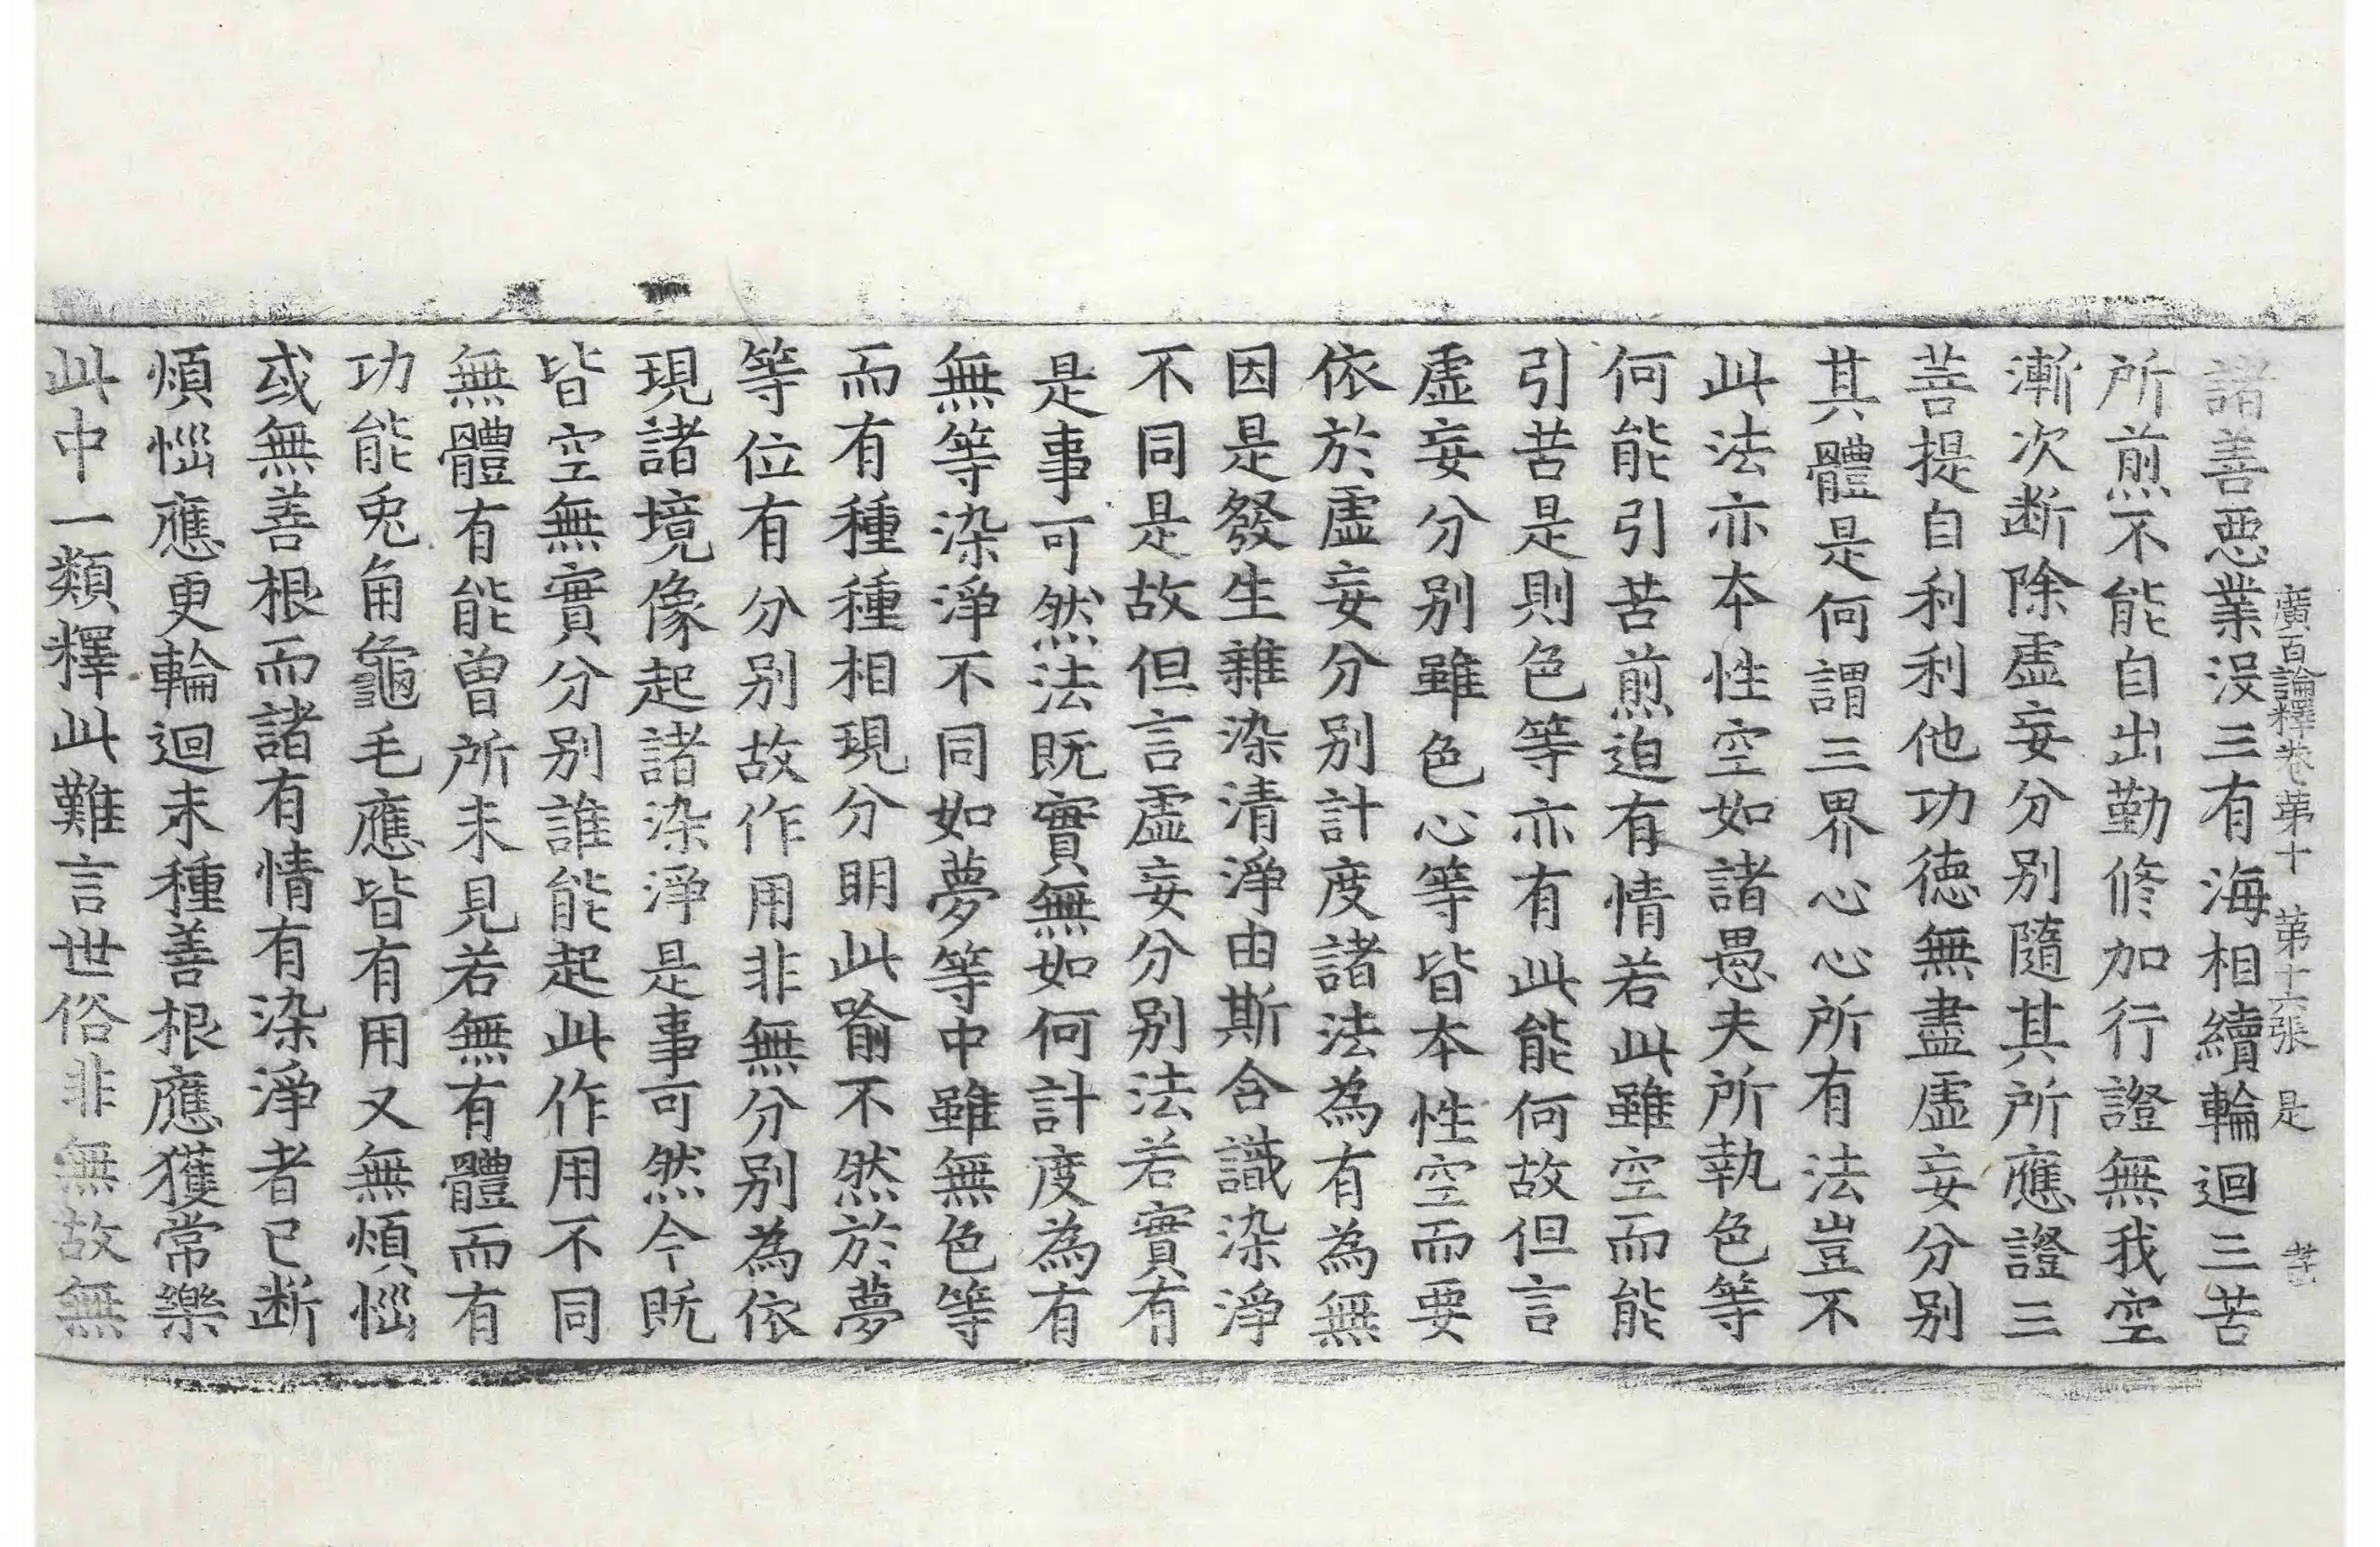 廣百論釋卷第十　第十六張　是
諸善惡業沒三有海相續輪迴三苦
所煎不能自出勤修加行證無我空
漸次斷除虛妄分別隨其所應證三
菩提自利利他功德無盡虛妄分別
其體是何謂三界心心所有法豈不
此法亦本性空如諸愚夫所執色等
何能引苦煎迫有情若此雖空而能
引苦是則色等亦有此能何故但言
虛妄分別雖色心等皆本性空而要
依於虛妄分別計度諸法為有為無
因是發生雜染清淨由斯含識染淨
不同是故但言虛妄分別法若實有
是事可然法既實無如何計度為有
無等染淨不同如夢等中雖無色等
而有種種相現分明此喻不然於夢
等位有分別故作用非無分別為依
現諸境像起諸染淨是事可然今既
皆空無實分別誰能起此作用不同
無體有能曾所未見若無有體而有
功能兎角龜毛應皆有用又無煩惱
或無善根而諸有情有染淨者已斷
煩惱應更輪迴未種善根應獲常樂
此中一類釋此難言世俗非無故無